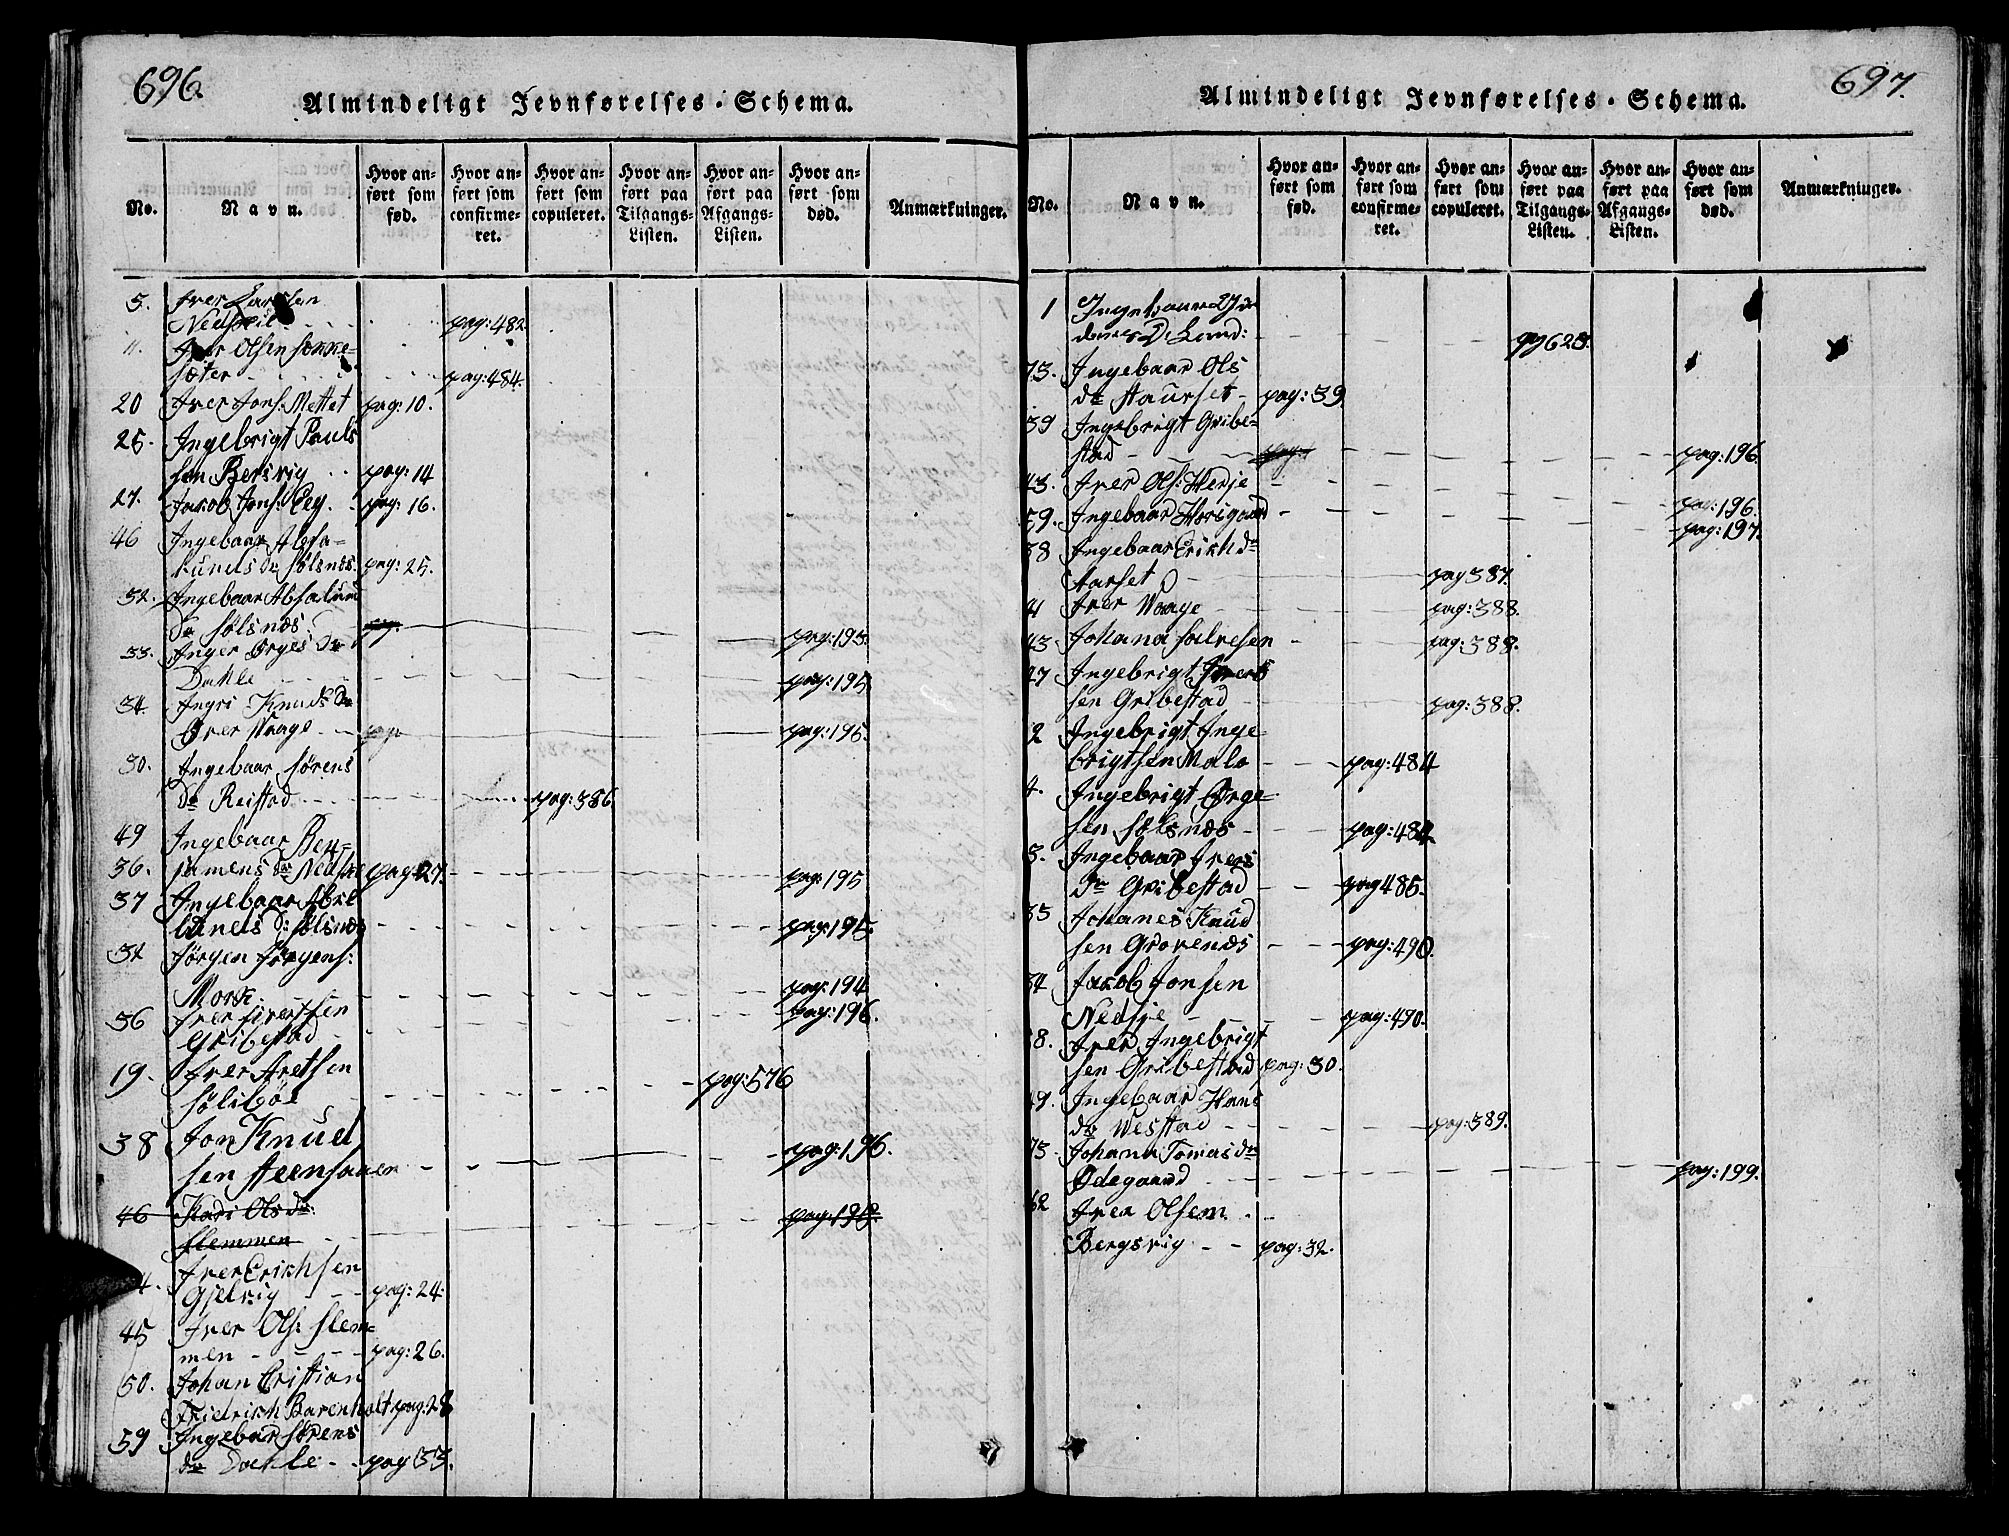 696.
Almindeligt Jevnførelses-Schema.
No.
Navn.
Hvor anført som fød.
Hvor anført som confirmeret.
Hvor anført som copuleret.
Hvor anført paa Tilgangs-Listen.
Hvor anført paa Afgangs-Listen.
Hvor anført som død.
Anmærkninger.
5. Iver Larssen
pag: 482
11. Iver Olsen
sæter pag: 484.
20 Iver Jons: Mettet pag: 10.
25. Ingebrigt Pauls
sen Bersvig pag: 14
27. Jacob Jons: Eeg. pag: 16.
46 Ingebaar Absa-
lunds dr Sølsnæs. pag: 25.
32. Ingebaar Absalum
dr Sølsnæs pag: 195.
33. Inger Ørges dr
Dahle pag: 195
34. Ingri Knuds dr
Øver Waage pag: pag: 195.
30. Ingebaar Sørens
dr Reistad pag: 386
49 Ingebaar Ben-
36. jamens dr Nedsie pag: 27. pag: 195
37 Ingebaar Absa
lunds d: Sølsnæs pag: 195.
34 Jørgen Jørgens:
Mork. pag: 194
36 Iver Iversen pag: 196.
Gribestad
19. Iver Aretsen pag: 576
Sølibøe
38 Jon Knud
sen Steensauen pag: 196.
46 Kari Ols dr:
Flemmen pag: 198.
4. Iver Erichsen
Gjelvig pag: 24.
45 Iver Ols: Flem-
men pag: 26.
50. Johan Cristian
Friedrich Barenholt pag: 28
59 Ingebar Sørens
dr Dahle pag 33.
697.
Almindeligt Jevnførelses-Schema.
No.
Navn.
Hvor anført som fød.
Hvor anført som confirmeret.
Hvor anført som copuleret.
Hvor anført paa Tilgangs-Listen.
Hvor anført paa Afgangs-Listen.
Hvor anført som død.
Anmærkninger.
1 Ingebaar
pag 628.
73. Ingebaar Ols
dr Staurset pag: 39.
39 Ingebrigt Gribe-
stad pag: pag: 196.
43. Iver Ols: Herje pag: 196.
59. Ingebaar Horsgaard pag: 197.
38 Ingebaar Erich dr
Aarset pag 387.
41 Iver Waage pag: 388.
43 Johana Salvesen pag: 388.
27 Ingebrigt Ivers
sen Gribestad pag: 388.
2 Ingebrigt Inge-
brigtsen Malo pag: 484
4. Ingebrigt Ørge-
sen Sølsnæs pag: 484
3. Ingebaar Ivers
dr Gribestad pag 485.
35 Johanes Knud
sen Grovenæs pag: 490.
34 Jacob Jonsen
Nedsje pag: 490.
18. Iver Ingebrigt
sen Gribestad pag: 30.
49. Ingebaar Hans
dr Westad pag: 389.
73. Johana Tomas dr
Ødegaard pag: 199.
62 Iver Olsen
Bergsvig pag: 32.